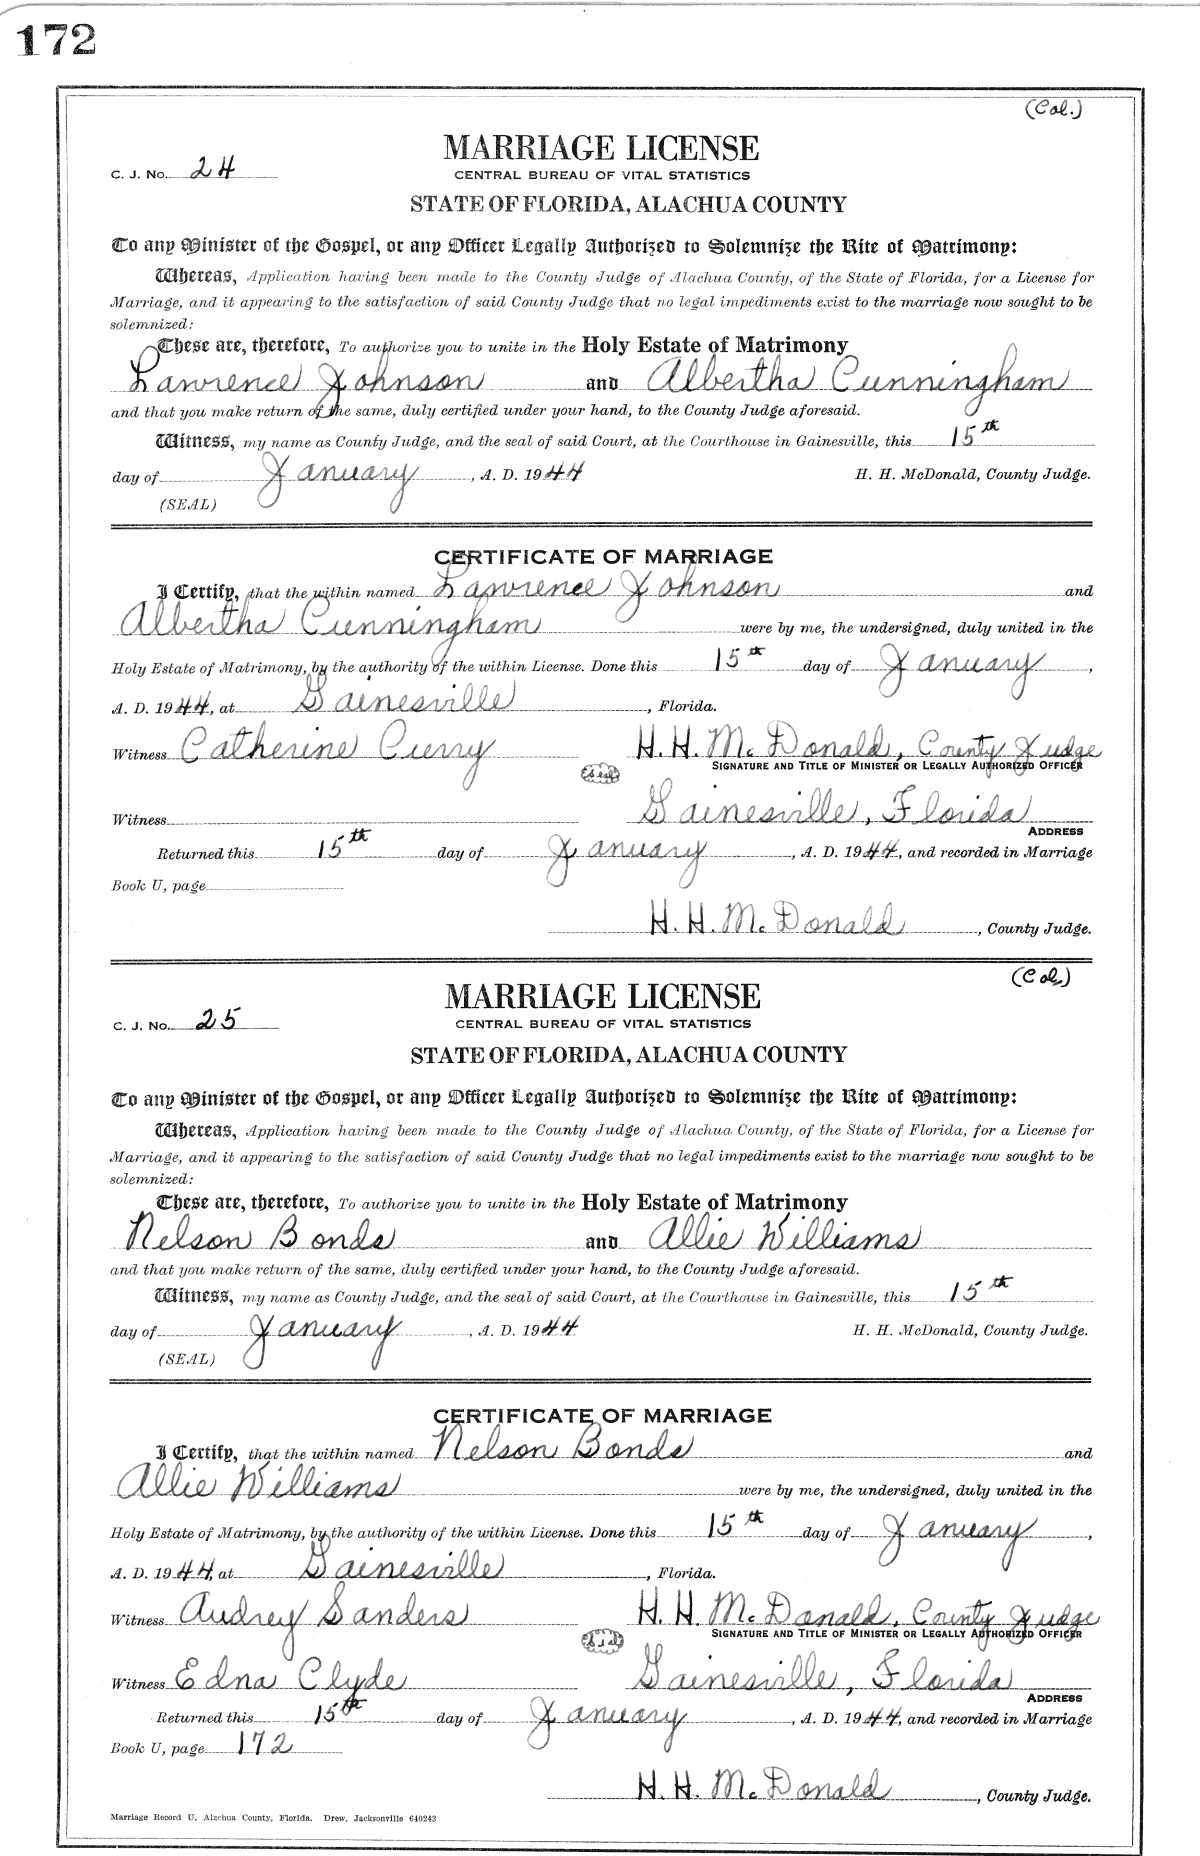 172
(Col.)
MARRIAGE LICENSE
C. J. No. 24
CENTRAL BUREAU OF VITAL STATISTICS
STATE OF FLORIDA, ALACHUA COUNTY
To any Minister of the Gospel, or any Officer Legally Authorized to Solemnize the Rite of Matrimony:
Whereas, Application having been made to the County Judge of Alachua County, of the State of Florida, for a License for
Marriage, and it appearing to the satisfaction of said County Judge that no legal impediments exist to the marriage now sought to be
solemnized:
These are, therefore, To authorize you to unite in the Holy Estate of Matrimony
Lawrence Johnson and Albertha Cunningham
and that you make return of the same, duly certified under your hand, to the County Judge aforesaid.
Witness, my name as County Judge, and the seal of said Court, at the Courthouse in Gainesville, this 15th
day of January, A. D. 1944 H. H. McDonald, County Judge.
(SEAL)
CERTIFICATE OF MARRIAGE
I Certify, that the within named Lawrence Johnson and
Albertha Cunningham were by me, the undersigned, duly united in the
Holy Estate of Matrimony, by the authority of the within License. Done this 15th day of January,
A. D. 1944, at Gainesville, Florida.
Witness Catherine Curry H. H. McDonald, County Judge
(Seal) SIGNATURE AND TITLE OF MINISTER OR LEGALLY AUTHORIZED OFFICER
Witness Gainesville, Florida
ADDRESS
Returned this 15th day of January, A. D. 1944, and recorded in Marriage
Book U, page
H. H. McDonald, County Judge.
(Col.)
MARRIAGE LICENSE
C. J. No. 25
CENTRAL BUREAU OF VITAL STATISTICS
STATE OF FLORIDA, ALACHUA COUNTY
To any Minister of the Gospel, or any Officer Legally Authorized to Solemnize the Rite of Matrimony:
Whereas, Application having been made to the County Judge of Alachua County, of the State of Florida, for a License for
Marriage, and it appearing to the satisfaction of said County Judge that no legal impediments exist to the marriage now sought to be
solemnized:
These are, therefore, To authorize you to unite in the Holy Estate of Matrimony
Nelson Bonds and Allie Williams
and that you make return of the same, duly certified under your hand, to the County Judge aforesaid.
Witness, my name as County Judge, and the seal of said Court, at the Courthouse in Gainesville, this 15th
day of January, A. D. 1944 H. H. McDonald, County Judge.
(SEAL)
CERTIFICATE OF MARRIAGE
I Certify, that the within named Nelson Bonds and
Allie Williams were by me, the undersigned, duly united in the
Holy Estate of Matrimony, by the authority of the within License. Done this 15th day of January,
A. D. 1944, at Gainesville, Florida.
Witness Audrey Sanders H. H. McDonald, County Judge
(Seal) SIGNATURE AND TITLE OF MINISTER OR LEGALLY AUTHORIZED OFFICER
Witness Edna Clyde Gainesville, Florida
ADDRESS
Returned this 15th day of January, A. D. 1944, and recorded in Marriage
Book U, page 172
H. H. McDonald, County Judge.
Marriage Record U, Alachua County, Florida. Drew, Jacksonville 640243